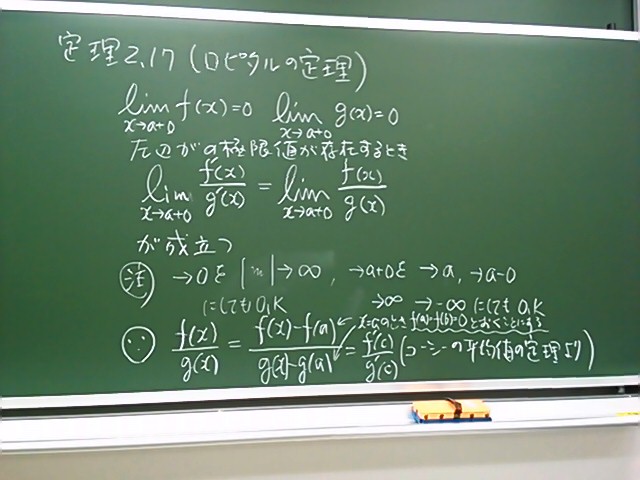 定理2.17 (ロピタルの定理)
lim x→a+0 f(x)=0 lim x→a+0 g(x)=0
左辺がの極限値が存在するとき
lim x→a+0 f'(x)/g'(x) = lim x→a+0 f(x)/g(x)
が成立つ
注 →0を | |→∞, →a+0を →a, →a-0
にしても O,K →∞ →-∞ にしても O,K
x=aのとき f(a)=f(b)=0 とおくことにする
∵ f(x)/g(x) = f(x)-f(a)/g(x)-g(a) = f'(c)/g'(c) (コーシーの平均値の定理より)